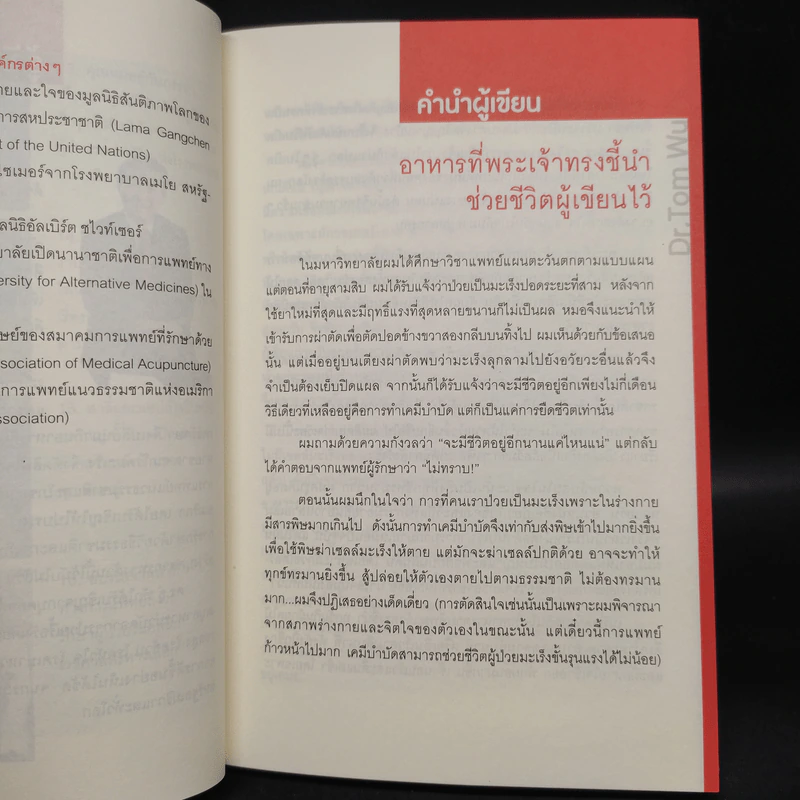 ค์กรต่างๆ
ายและใจของมูลนิธิสันติภาพโลกของ
การสหประชาชาติ (Lama Gangchen
t of the United Nations)
ไซเมอร์จากโรงพยาบาลเมโย สหรัฐ-
ลนิธิอัลเบิร์ต ชไวท์เซอร์
ยาลัยเปิดนานาชาติเพื่อการแพทย์ทาง
ersity for Alternative Medicines) ใน
ษย์ของสมาคมการแพทย์ที่รักษาด้วย
ssociation of Medical Acupuncture)
การแพทย์แนวธรรมชาติแห่งอเมริกา
ssociation)
คำนำผู้เขียน
Dr.Tom Wu
อาหารที่พระเจ้าทรงชี้นำ
ช่วยชีวิตผู้เขียนไว้
ในมหาวิทยาลัยผมได้ศึกษาวิชาแพทย์แผนตะวันตกตามแบบแผน
แต่ตอนที่อายุสามสิบ ผมได้รับแจ้งว่าป่วยเป็นมะเร็งปอดระยะที่สาม หลังจาก
ใช้ยาใหม่ที่สุดและมีฤทธิ์แรงที่สุดหลายขนานก็ไม่เป็นผล หมอจึงแนะนำให้
เข้ารับการผ่าตัดเพื่อตัดปอดข้างขวาสองกลีบบนทิ้งไป ผมเห็นด้วยกับข้อเสนอ
นั้น แต่เมื่ออยู่บนเตียงผ่าตัดพบว่ามะเร็งลุกลามไปยังอวัยวะอื่นแล้วจึง
จำเป็นต้องเย็บปิดแผล จากนั้นก็ได้รับแจ้งว่าจะมีชีวิตอยู่อีกเพียงไม่กี่เดือน
วิธีเดียวที่เหลืออยู่คือการทำเคมีบำบัด แต่ก็เป็นแค่การยืดชีวิตเท่านั้น
ผมถามด้วยความกังวลว่า “จะมีชีวิตอยู่อีกนานแค่ไหนแน่” แต่กลับ
ได้คำตอบจากแพทย์ผู้รักษาว่า “ไม่ทราบ!”
ตอนนั้นผมนึกในใจว่า การที่คนเราป่วยเป็นมะเร็งเพราะในร่างกาย
มีสารพิษมากเกินไป ดังนั้นการทำเคมีบำบัดจึงเท่ากับส่งพิษเข้าไปมากยิ่งขึ้น
เพื่อใช้พิษฆ่าเซลล์มะเร็งให้ตาย แต่มักจะฆ่าเซลล์ปกติด้วย อาจจะทำให้
ทุกข์ทรมานยิ่งขึ้น สู้ปล่อยให้ตัวเองตายไปตามธรรมชาติ ไม่ต้องทรมาน
มาก...ผมจึงปฏิเสธอย่างเด็ดเดี่ยว (การตัดสินใจเช่นนั้นเป็นเพราะผมพิจารณา
จากสภาพร่างกายและจิตใจของตัวเองในขณะนั้น แต่เดี๋ยวนี้การแพทย์
ก้าวหน้าไปมาก เคมีบำบัดสามารถช่วยชีวิตผู้ป่วยมะเร็งขั้นรุนแรงได้ไม่น้อย)